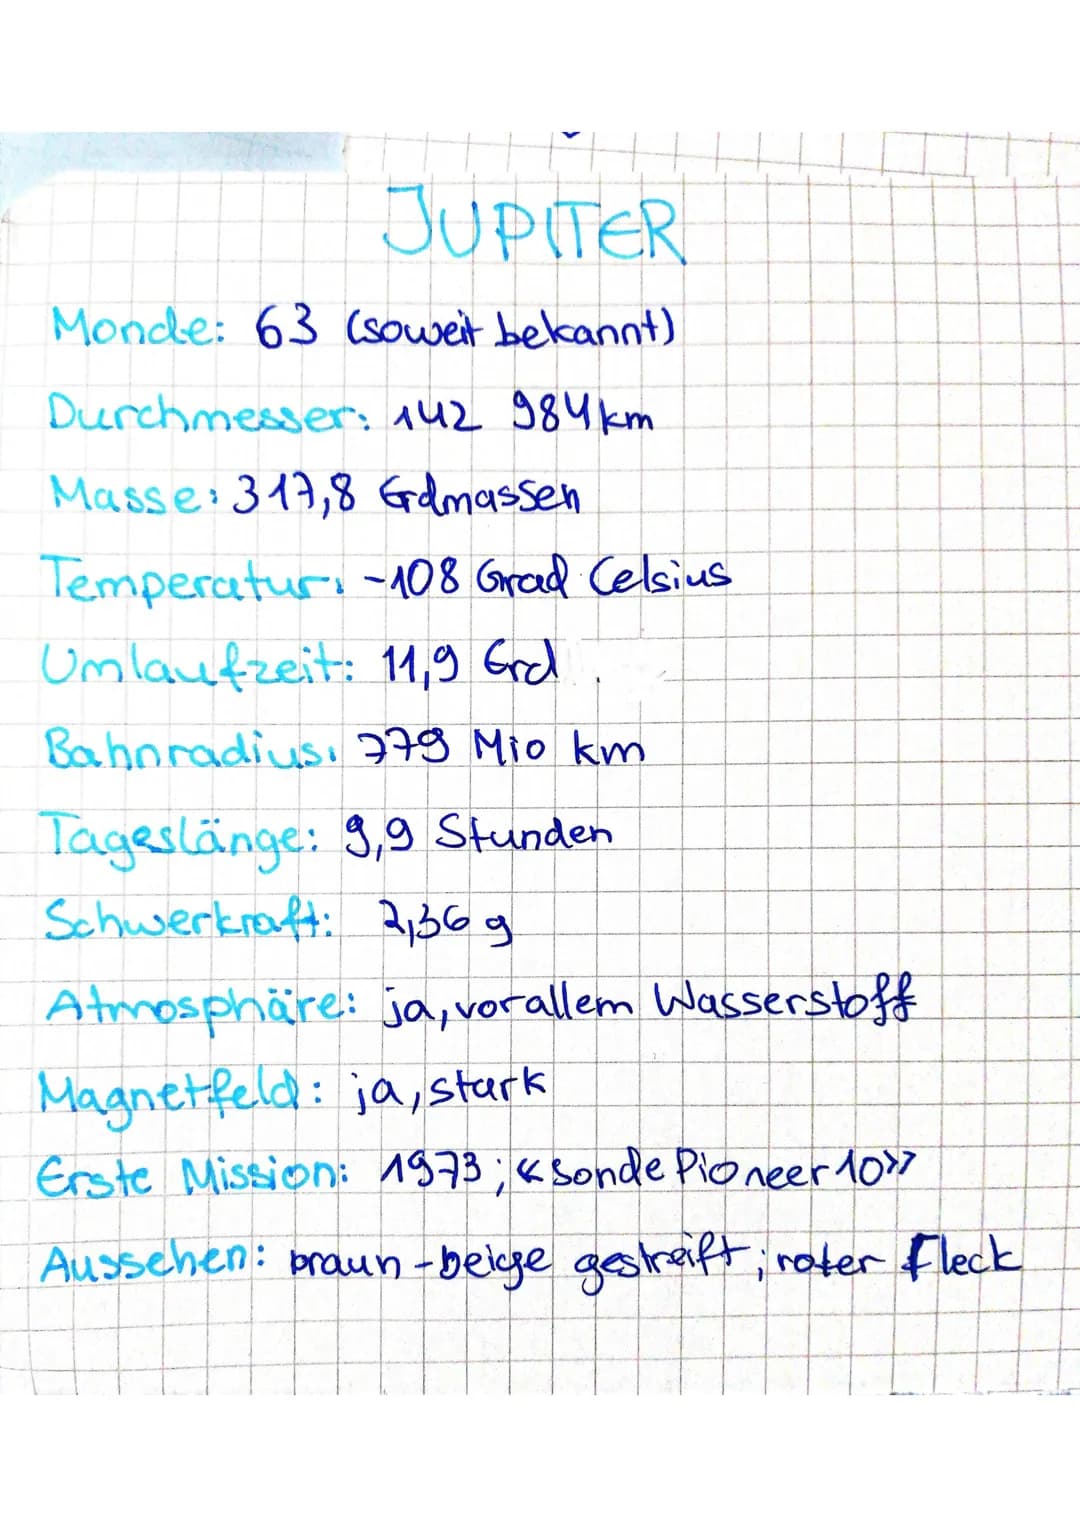 JUPITER
Monde: 63 (soweit bekannt)
Durchmesser: 142 984 km
Masse: 317,8 Erdmassen
Temperatur: -108 Grad Celsius
Umlaufzeit: 11,9 Erd
Bahnradius: 779 Mio km
Tageslänge: 9,9 Stunden
Schwerkraft: 2,36 g
Atmosphäre: ja, vor allem Wasserstoff
Magnetfeld: ja, stark
Erste Mission: 1973; «Sonde Pioneer 10»
Aussehen: braun-beige gestreift; roter Fleck